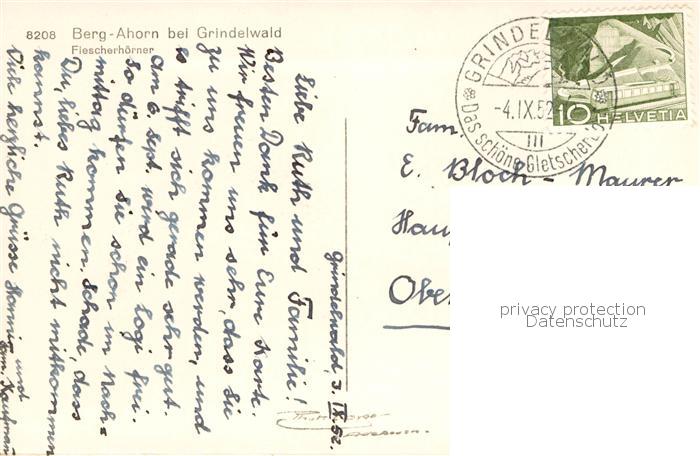 8208 Berg-Ahorn bei Grindelwald
Fiescherhörner
Grindelwald, 3. IX. 52.
Liebe Ruth und Familie!
Besten Dank für Eure Karte.
Wir freuen uns sehr, dass Sie
zu uns kommen werden, und
es trifft sich gerade sehr gut.
Am 6. Sept. wird ein Logi frei.
So dürfen Sie schon im Nach=
mittag kommen. Schade, dass
Du, liebes Ruth nicht mitkommen
kannst.
Viele herzliche Grüsse und
Fam. Kaufmann
GRINDEL
-4.IX.52
III
Das schöne Gletscher
10 HELVETIA
Fam.
E. Bloch-Maurer
Hau
Obe
privacy protection
Datenschutz